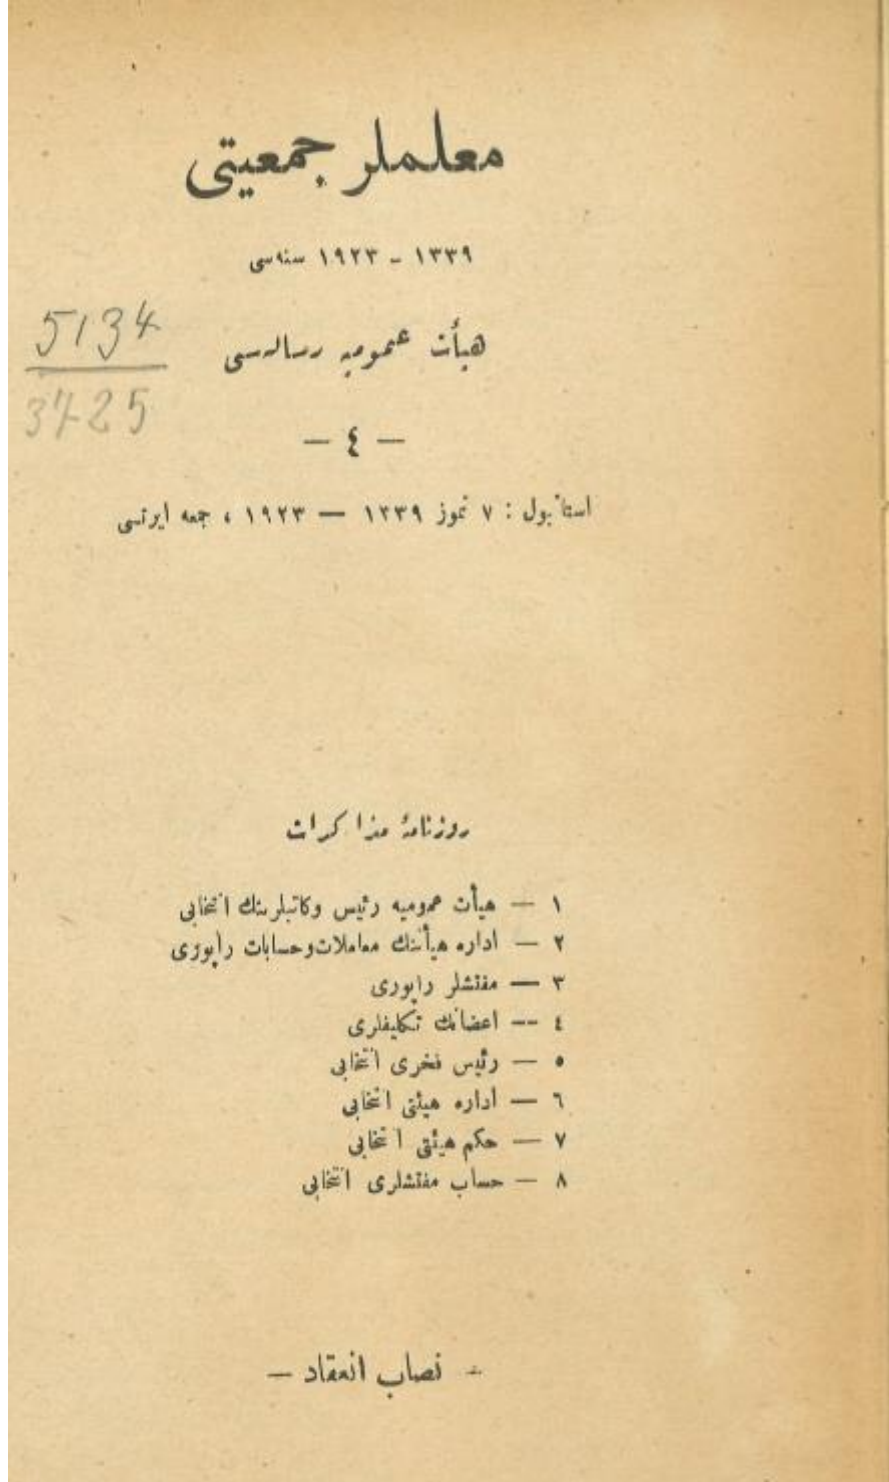 معلملر جمعیتی
١٣٣٩ - ١٩٢٣ سنه‌سی
هیأت عمومیه رساله‌سی
5134
3725
— ٤ —
استانبول : ٧ تموز ١٣٣٩ — ١٩٢٣ ، جمعه ایرتسی
روزنامهٔ مذاکرات
١ — هیأت عمومیه رئیس وکاتبلرینك انتخابی
٢ — اداره هیأتنك معاملات‌وحسابات راپورى
٣ — مفتشلر راپوری
٤ — اعضانك تکلیفلری
٥ — رئیس فخری انتخابی
٦ — اداره هیئتی انتخابی
٧ — حکم هیئتی انتخابی
٨ — حساب مفتشلری انتخابی
- نصاب انعقاد —